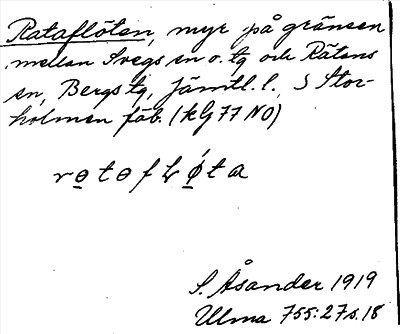 Rataflöten, myr på gränsen
mellan Svegs sn o. tg och Rätans
sn, Bergs tg, Jämtl. l., S Stor-
holmen fäb. (kG 77 NO)
S. Åsander 1919
Ulma 755:27 s. 18